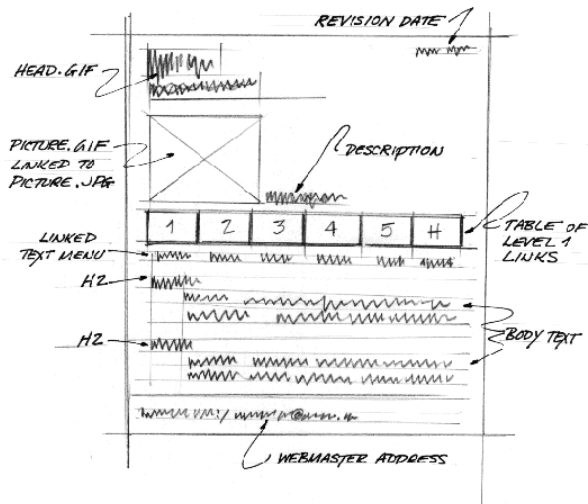 REVISION DATE
HEAD.GIF
PICTURE.GIF
LINKED TO
PICTURE.JPG
DESCRIPTION
1 2 3 4 5 H
TABLE OF
LEVEL 1
LINKS
LINKED
TEXT MENU
H2
BODY TEXT
H2
@
WEBMASTER ADDRESS